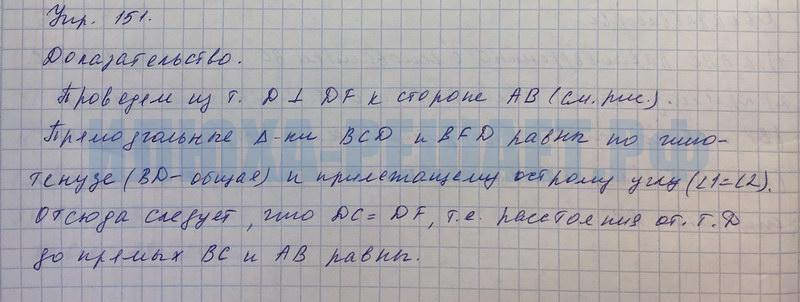 Упр. 151.
Доказательство.
Проведем из т. D ⊥ DF к стороне AB (см. рис.).
Прямоугольные Δ-ки BCD и BFD равны по гипо-
тенузе (BD – общая) и прилежащему острому углу (∠1=∠2).
Отсюда следует, что DC = DF, т.е. расстояния от т. D
до прямых BC и AB равны.